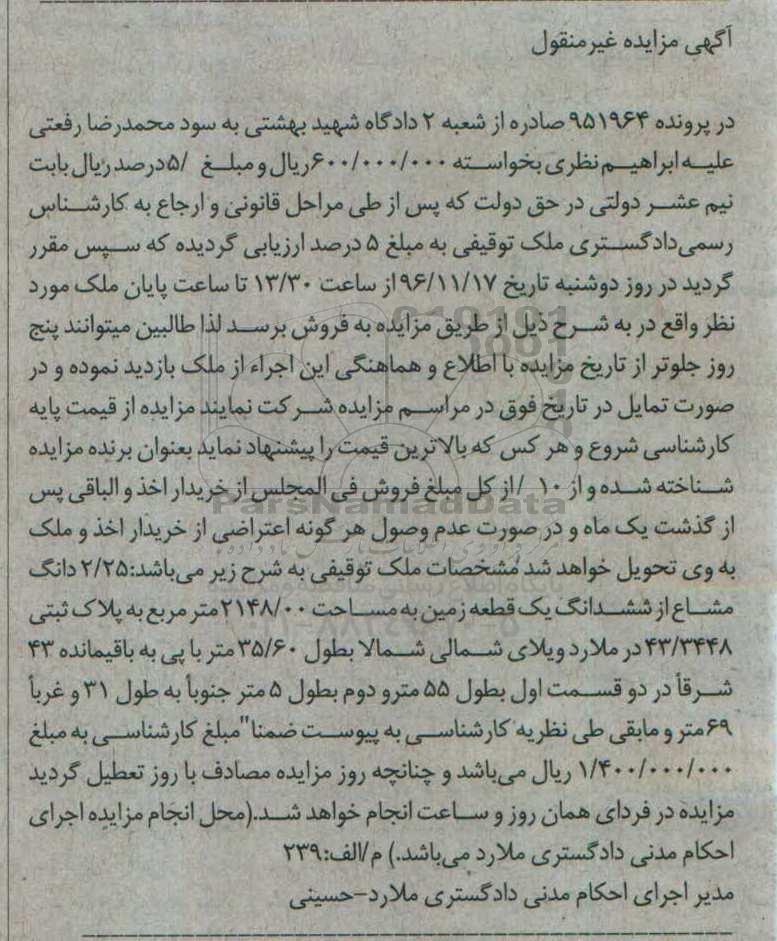 آگهی مزایده غیرمنقول
در پرونده ۹۵۱۹۶۴ صادره از شعبه ۲ دادگاه شهید بهشتی به سود محمدرضا رفعتی
علیه ابراهیم نظری بخواسته ۶۰۰/۰۰۰/۰۰۰ریال و مبلغ /۵درصد ریال بابت
نیم عشر دولتی در حق دولت که پس از طی مراحل قانونی و ارجاع به کارشناس
رسمی دادگستری ملک توقیفی به مبلغ ۵ درصد ارزیابی گردیده که سپس مقرر
گردید در روز دوشنبه تاریخ ۹۶/۱۱/۱۷از ساعت ۱۳/۳۰ تا ساعت پایان ملک مورد
نظر واقع در به شرح ذیل از طریق مزایده به فروش برسد لذا طالبین میتوانند پنج
روز جلوتر از تاریخ مزایده با اطلاع و هماهنگی این اجراء از ملک بازدید نموده و در
صورت تمایل در تاریخ فوق در مراسم مزایده شرکت نمایند مزایده از قیمت پایه
کارشناسی شروع و هر کس که بالاترین قیمت را پیشنهاد نماید بعنوان برنده مزایده
شناخته شده و از ۱۰ /از کل مبلغ فروش فی المجلس از خریدار اخذ و الباقی پس
از گذشت یک ماه و در صورت عدم وصول هر گونه اعتراضی از خریدار اخذ و ملک
به وی تحویل خواهد شد مشخصات ملک توقیفی به شرح زیر می‌باشد:۲/۲۵ دانگ
مشاع از ششدانگ یک قطعه زمین به مساحت ۲۱۴۸/۰۰ متر مربع به پلاک ثبتی
۴۳/۳۴۴۸ در ملارد ویلای شمالی شمالا بطول ۳۵/۶۰ متر با پی به باقیمانده ۴۳
شرقاً در دو قسمت اول بطول ۵۵ مترو دوم بطول ۵ متر جنوباً به طول ۳۱ و غرباً
۶۹متر و مابقی طی نظریه کارشناسی به پیوست ضمنا"مبلغ کارشناسی به مبلغ
۱/۴۰۰/۰۰۰/۰۰۰ ریال می‌باشد و چنانچه روز مزایده مصادف با روز تعطیل گردید
مزایده در فردای همان روز و ساعت انجام خواهد شد.(محل انجام مزایده اجرای
احکام مدنی دادگستری ملارد می‌باشد.) م/الف:۲۳۹
مدیر اجرای احکام مدنی دادگستری ملارد-حسینی
ParsNamadData